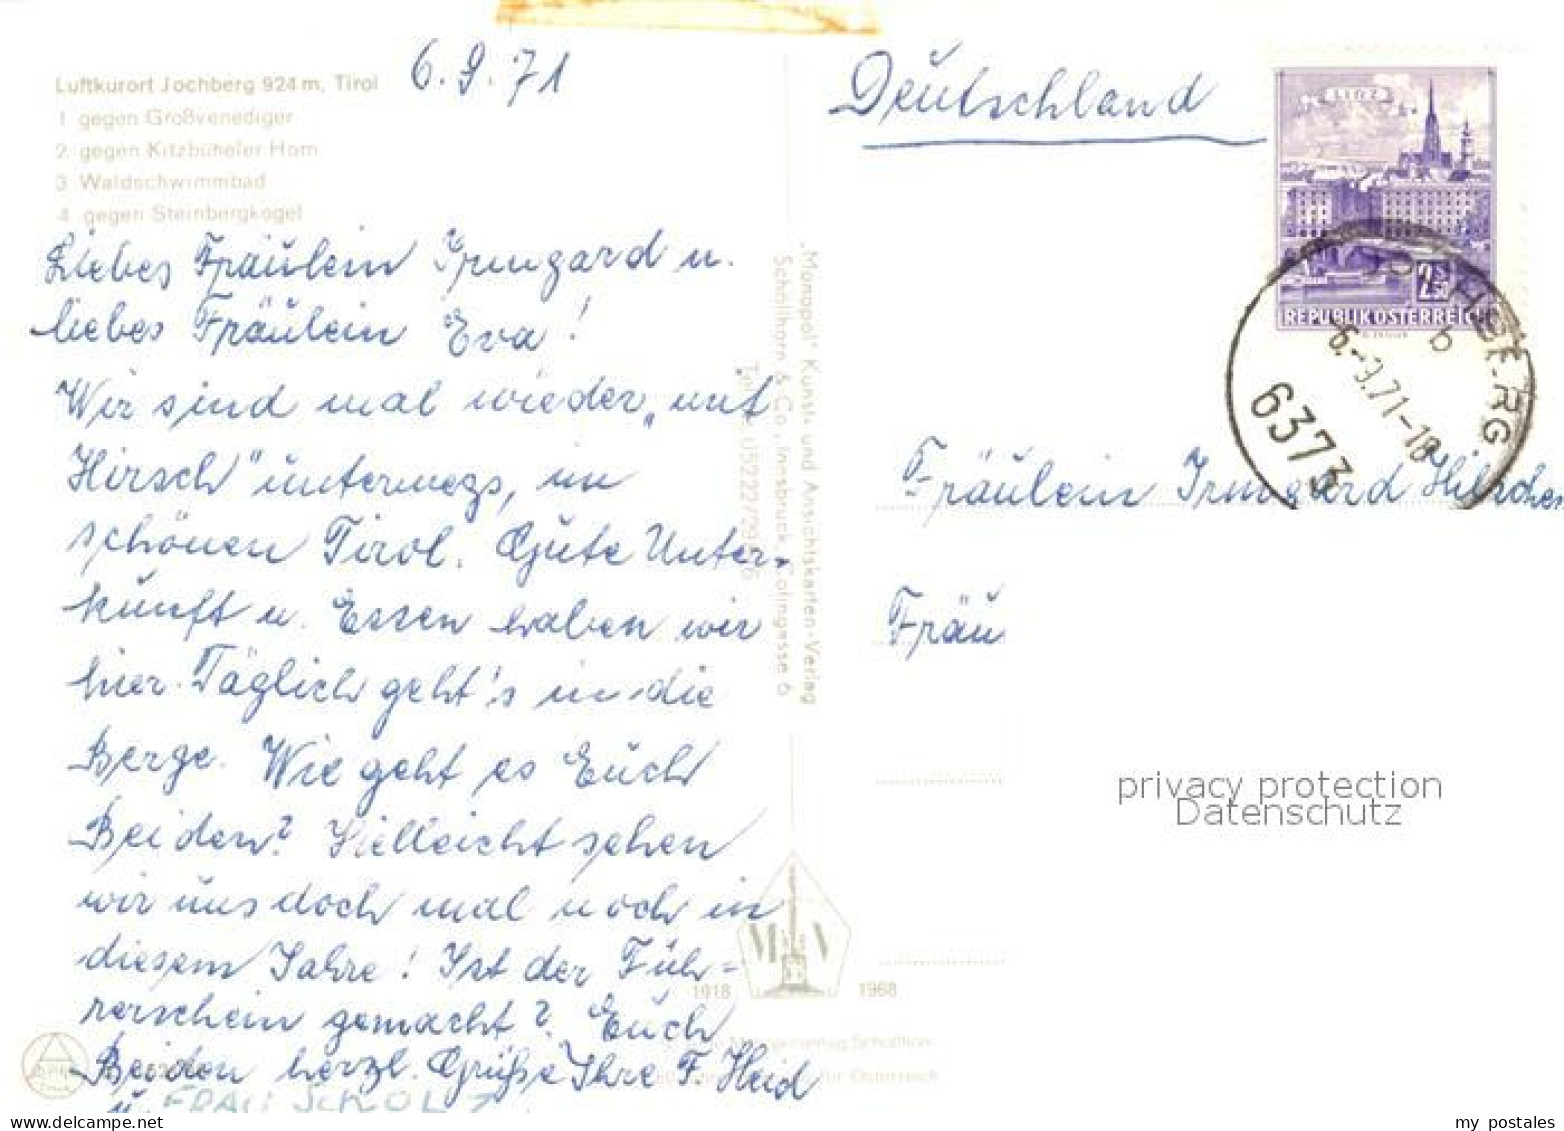 Luftkurort Jochberg 924 m, Tirol
1 gegen Großvenediger
2 gegen Kitzbüheler Horn
3 Waldschwimmbad
4 gegen Steinbergkogel
6.9.71
Liebes Fräulein Irmgard u.
liebes Fräulein Eva!
Wir sind mal wieder „mit
Hirsch" unterwegs, im
schönen Tirol. Gute Unter-
kunft u. Essen haben wir
hier. Täglich geht's in die
Berge. Wie geht es Euch
Beiden? Vielleicht sehen
wir uns doch mal noch in
diesem Jahre! Ist der Füh-
rerschein gemacht? Euch
Beiden herzl. Grüße Ihre F. Heid
u. FRAU SCHOLZ
"Monopol" Kunst- und Ansichtskarten-Verlag
Schöllhorn & Co., Innsbruck, Colingasse 6
1918 1968
für Österreich
Deutschland
LINZ
2 S
REPUBLIK ÖSTERREICH
JOCHBERG
b
6.-9.71-18
6373
Fräulein Irmgard
Fräu
privacy protection
Datenschutz
www.delcampe.net
my_postales